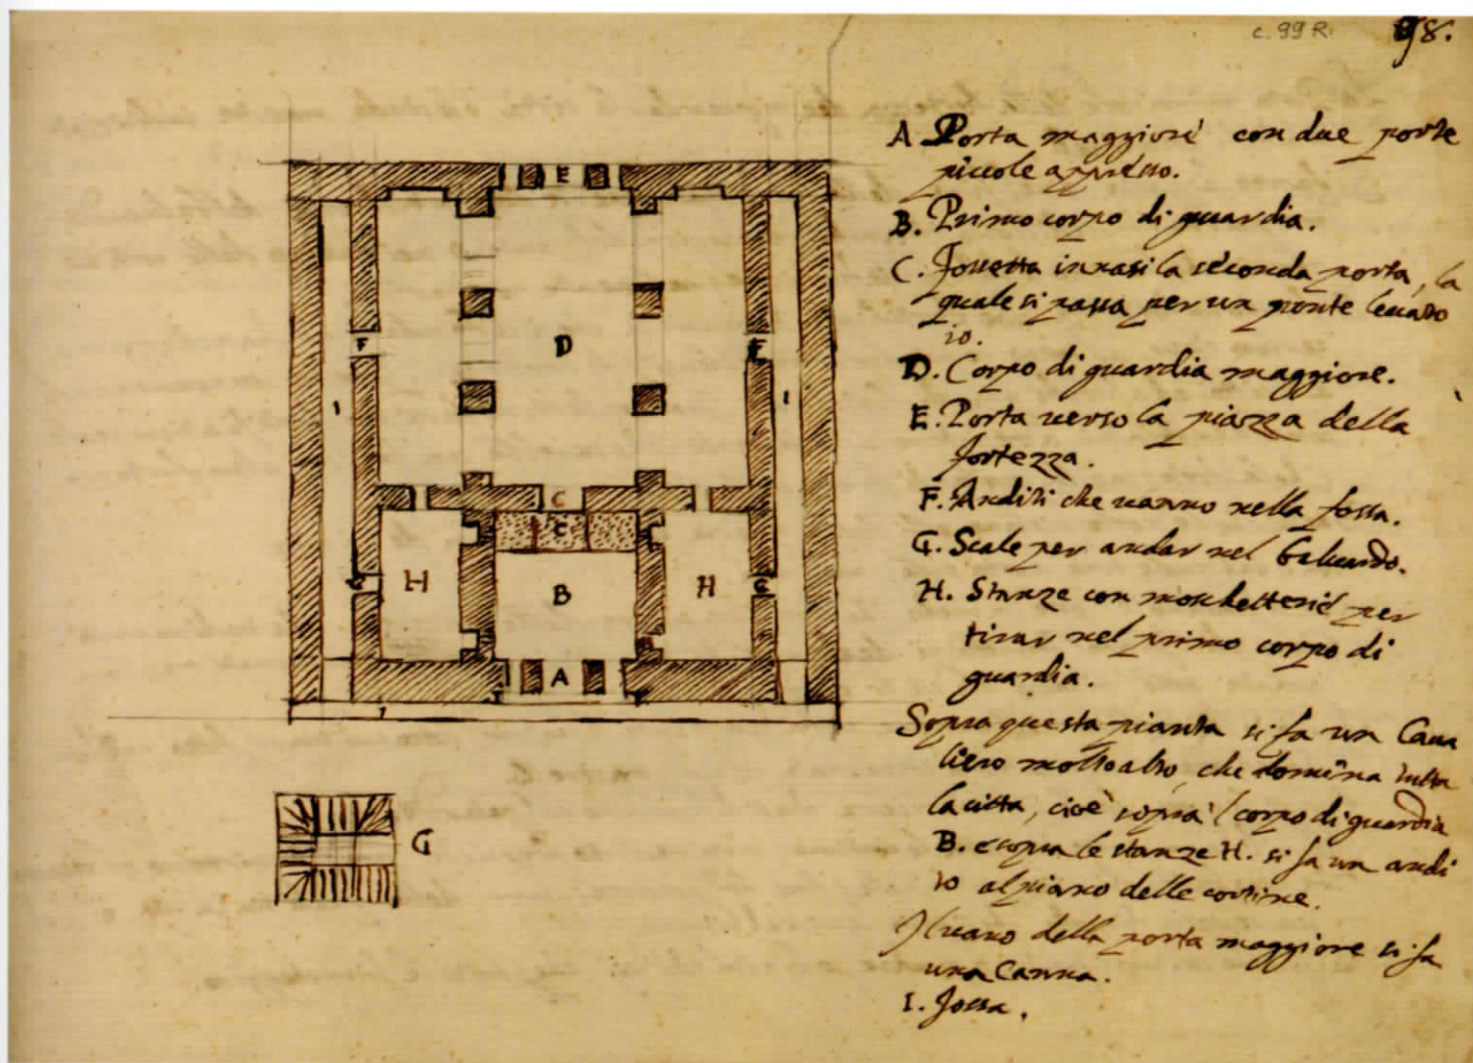 c. 99 R.
98.
A Porta maggiore con due porte
piccole appresso.
B. Primo corpo di guardia.
C. Fossetta innasi la seconda porta, la
quale si passa per un ponte leuato
io.
D. Corpo di guardia maggiore.
E. Porta uerso la piazza della
fortezza.
F. Anditi che uanno nella fossa.
G. Scale per andar nel Baluardo.
H. Stanze con moschetterie per
tirar nel primo corpo di
guardia.
Sopra questa pianta si fa un Caua
liero molto alto, che domina tutta
la citta, cioè sopra 'l corpo di guardia
B. e sopra le stanze H. si fa un andi
to al piano delle cortine.
Il uano della porta maggiore si fa
una Canna.
I. Fossa.
E
F
D
F
I
I
C
C
H
B
H
G
G
A
G